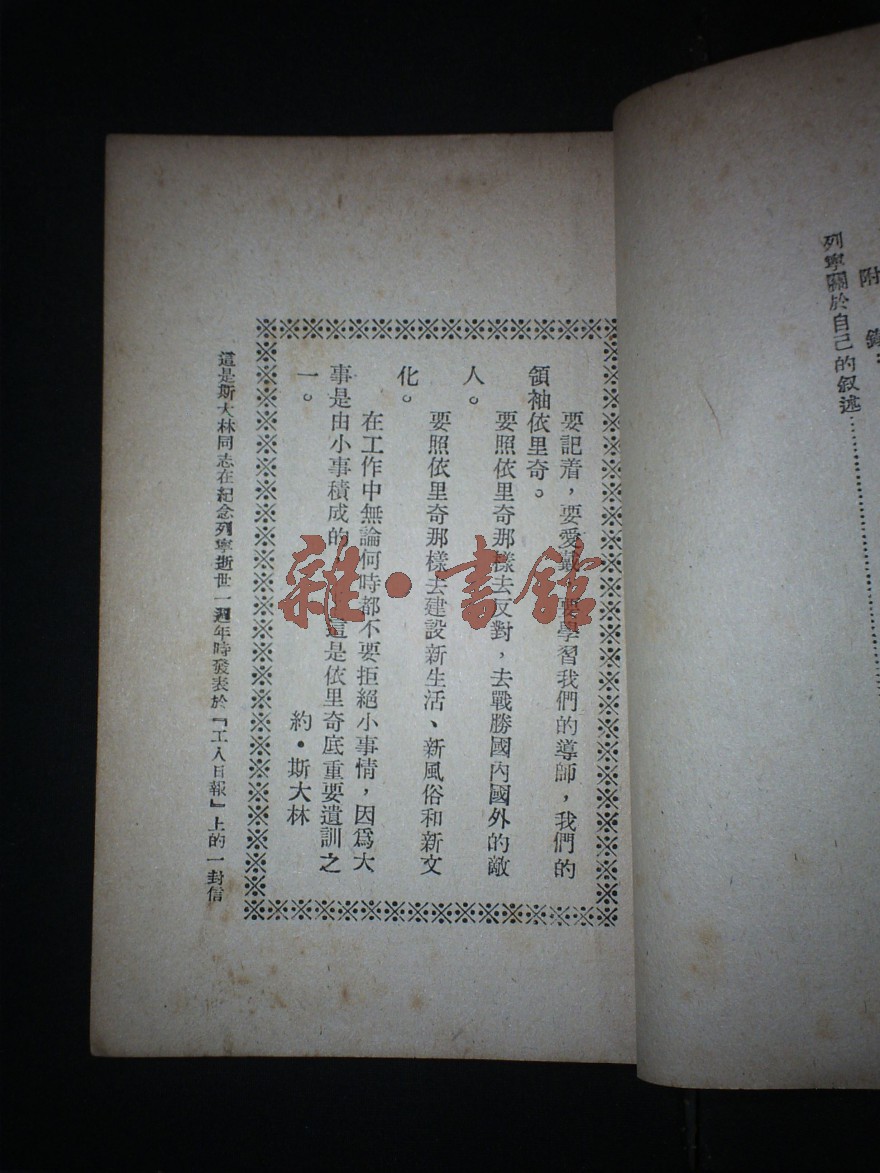 附錄：
列寧關於自己的叙述……………………
要記着，要愛戴，要學習我們的導師，我們的
領袖依里奇。
要照依里奇那樣去反對，去戰勝國內國外的敵
人。
要照依里奇那樣去建設新生活、新風俗和新文
化。
在工作中無論何時都不要拒絕小事情，因爲大
事是由小事積成的 這是依里奇底重要遺訓之
一。
約·斯大林
這是斯大林同志在紀念列寧逝世一週年時發表於『工人日報』上的一封信
雜·書館